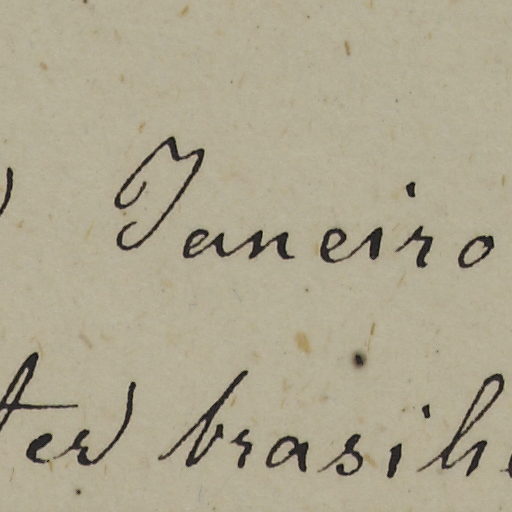 Janeiro
ter brasili